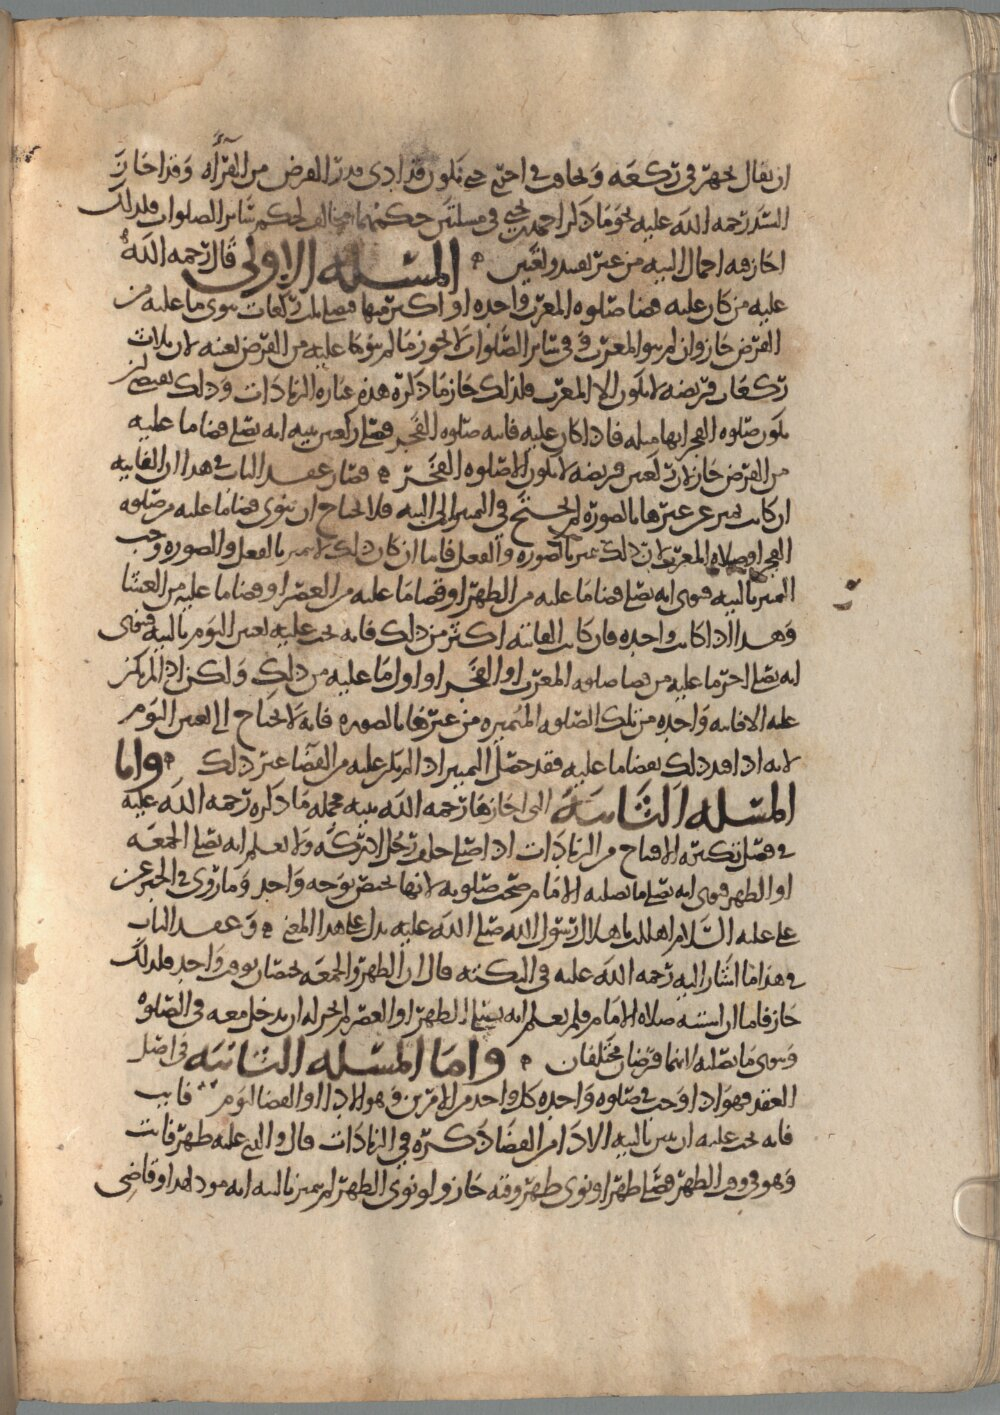 ان يقال يجهر في ركعة ويخافت في اخرى حتى يكون قد ادى قدر الفرض من القرآه وقد اجاز
السيد رحمه الله عليه نحو ما ذكر احمد بن يحيى في مسلتين حكمهما مخالف لحكم سائر الصلوات فلذلك
اجاز فيه اجمال النيه من غير تقييد وتعيين المسله الاولى قال رحمه الله
عليه من كان عليه قضا صلوه المغرب واحده او اكثر منها فصلى ثلث ركعات ينوي ما عليه من
الفرض جاز وان لم ينو المغرب وفي سائر الصلوات لا يجوز ما لم ينو ما عليه من الفرض لعينه لان ثلاث
ركعات فريضه لا يكون الا المغرب فلذلك جاز ما ذكره هذه عباره الزيادات وذلك يقتضي ان
يكون صلوه الفجر ايضا مثله فاذا كان عليه فائته صلوه الفجر فصلى ركعتين بنيه انه يصلي قضا ما عليه
من الفرض جاز لان ركعتين فريضه لا يكون الا صلوه الفجر فصار عقد الباب في هذا ان الفايته
ان كانت تتميز عن غيرها بالصوره لم يحتج في التمييز الى النيه فلا يحتاج ان ينوي قضا ما عليه من صلوه
الفجر او صلاه المغرب لان ذلك متميز بالصوره والفعل فاما ان كان ذلك لا يتميز بالفعل والصوره وجب
التمييز بالنيه فينوي انه يصلي قضا ما عليه من الظهر او قضا ما عليه من العصر او قضا ما عليه من العشا
وهذا اذا كانت واحده فان كانت الفائته اكثر من ذلك فانه يجب عليه تعيين اليوم بالنيه فينوي
انه يصلي اخر ما عليه من قضا صلوه المغرب او الفجر او اول ما عليه من ذلك ولكن اذا لم يكن
عليه الا فائته واحده من تلك الصلوه المتميزه من غيرها بالصوره فانه لا يحتاج الى تعيين اليوم
لانه اذا قيد ذلك بقضا ما عليه فقد حصل التمييز اذ لم يكن عليه من القضا غير ذلك واما
المسله الثانيه التي اجازها رحمه الله بنيه مجمله ما ذكره رحمه الله عليه
في فصل تكبيره الافتتاح من الزيادات اذا صلى خلف رجل ادركه ولا يعلم انه يصلي الجمعه
او الظهر فنوى انه يصلي ما يصليه الامام صحت صلوته لانها تختص بوجه واحد وما روي في الخبر عن
علي عليه السلام اهللت بما هل به الرسول الله صلى الله عليه يدل على هذا المعنى وعقد الباب
في هذا ما اشار اليه رحمه الله عليه في النكته قال ان الظهر والجمعه يختصان بوقت واحد فلذلك
جاز فاما ان اشتبه صلاه الامام فلم يعلم انه يصلي الظهر او العصر لم يجز له ان يدخل معه في الصلوه
وينوي ما يصليه انهما فرضان مختلفان واما المسله الثانيه في اصل
العقد فهو اذا وجب في صلوه واحده كل واحد من الامرين وهو الادا او القضا اليوم فايت
فانه يجب عليه ان يميز بالنيه الادا من القضا ذكره في الزيادات قال والذي عليه ظهر فائت
وهو في وقت الظهر فصلى ظهرا ونوى ظهر وقته جاز ولو نوى الظهر لم يتميز بالنيه انه مود لهذا وقاضي